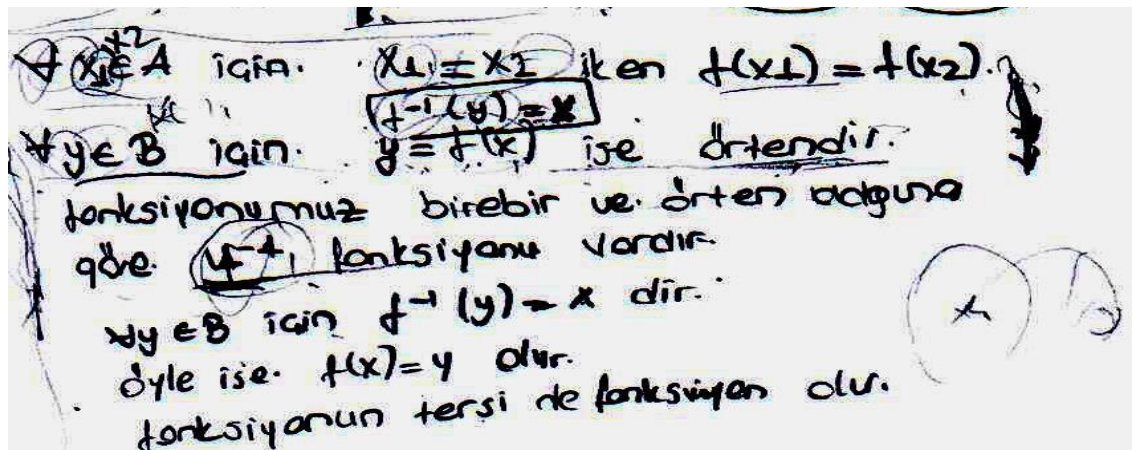 ∀ x1,x2 ∈ A için. x1 = x2 iken f(x1) = f(x2).
f⁻¹(y) = x
∀y ∈ B için. y = f(x) ise örtendir.
fonksiyonumuz birebir ve örten olduguna
göre f⁻¹, fonksiyonu vardır.
∀y ∈ B için f⁻¹(y) = x dir.
öyle ise. f(x) = y olur.
fonksiyonun tersi de fonksiyon olur.